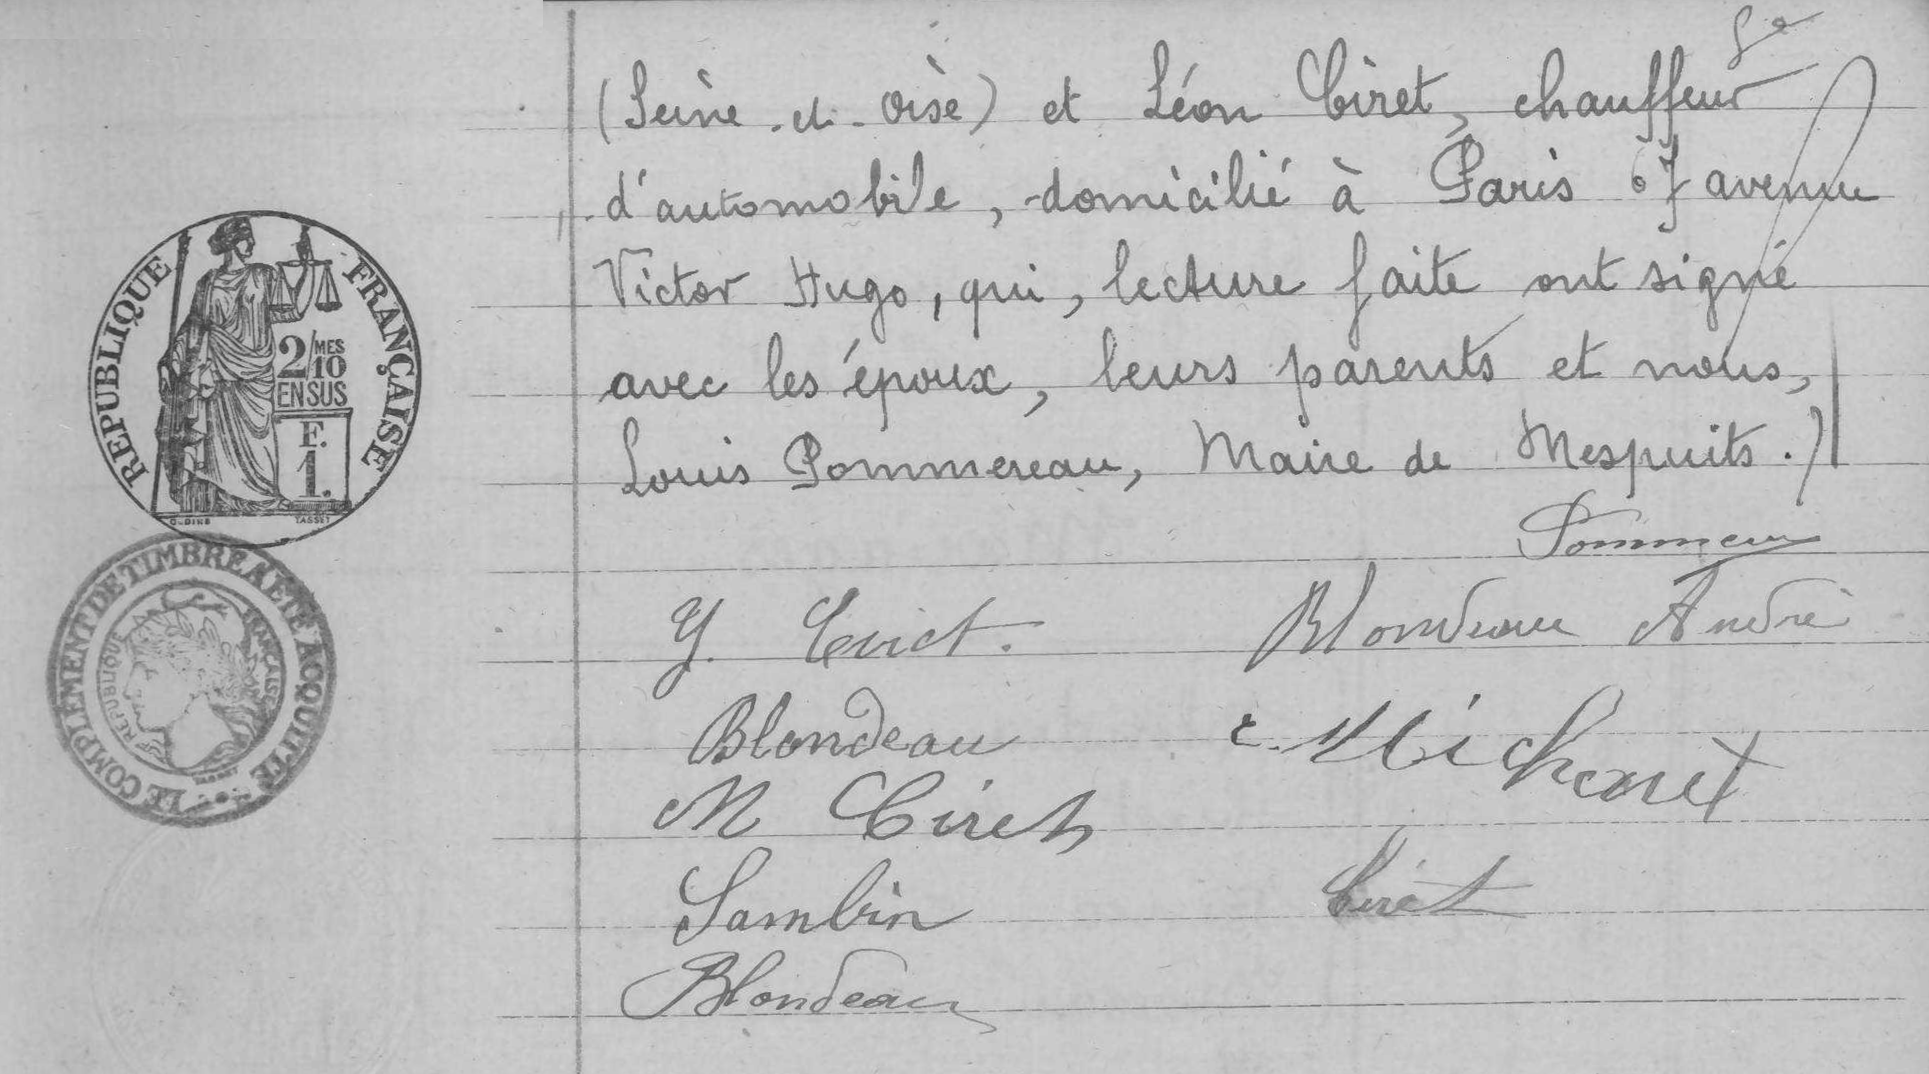 (Seine-et-Oise) et Léon Ciret, chauffeur
d'automobile, domicilié à Paris 67 avenue
Victor Hugo, qui, lecture faite ont signé
avec les époux, leurs parents et nous,
Louis Pommereau, Maire de Mespuits.
Pommereau
Y. Ciret.
Blondeau André
Blondeau
Michonet
M Ciret
Sambin
Ciret
Blondeau
REPUBLIQUE FRANÇAISE
2/MES
10
EN SUS
F.
1.
OUDINÉ
TASSET
LE COMPLÉMENT DE TIMBRE A ÉTÉ ACQUITTÉ
REPUBLIQUE FRANÇAISE